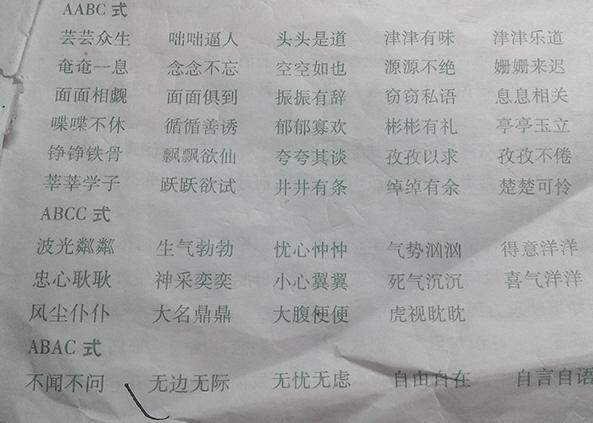 AABC 式
芸芸众生 咄咄逼人 头头是道 津津有味 津津乐道
奄奄一息 念念不忘 空空如也 源源不绝 姗姗来迟
面面相觑 面面俱到 振振有辞 窃窃私语 息息相关
喋喋不休 循循善诱 郁郁寡欢 彬彬有礼 亭亭玉立
铮铮铁骨 飘飘欲仙 夸夸其谈 孜孜以求 孜孜不倦
莘莘学子 跃跃欲试 井井有条 绰绰有余 楚楚可怜
ABCC 式
波光粼粼 生气勃勃 忧心忡忡 气势汹汹 得意洋洋
忠心耿耿 神采奕奕 小心翼翼 死气沉沉 喜气洋洋
风尘仆仆 大名鼎鼎 大腹便便 虎视眈眈
ABAC 式
不闻不问 无边无际 无忧无虑 自由自在 自言自语